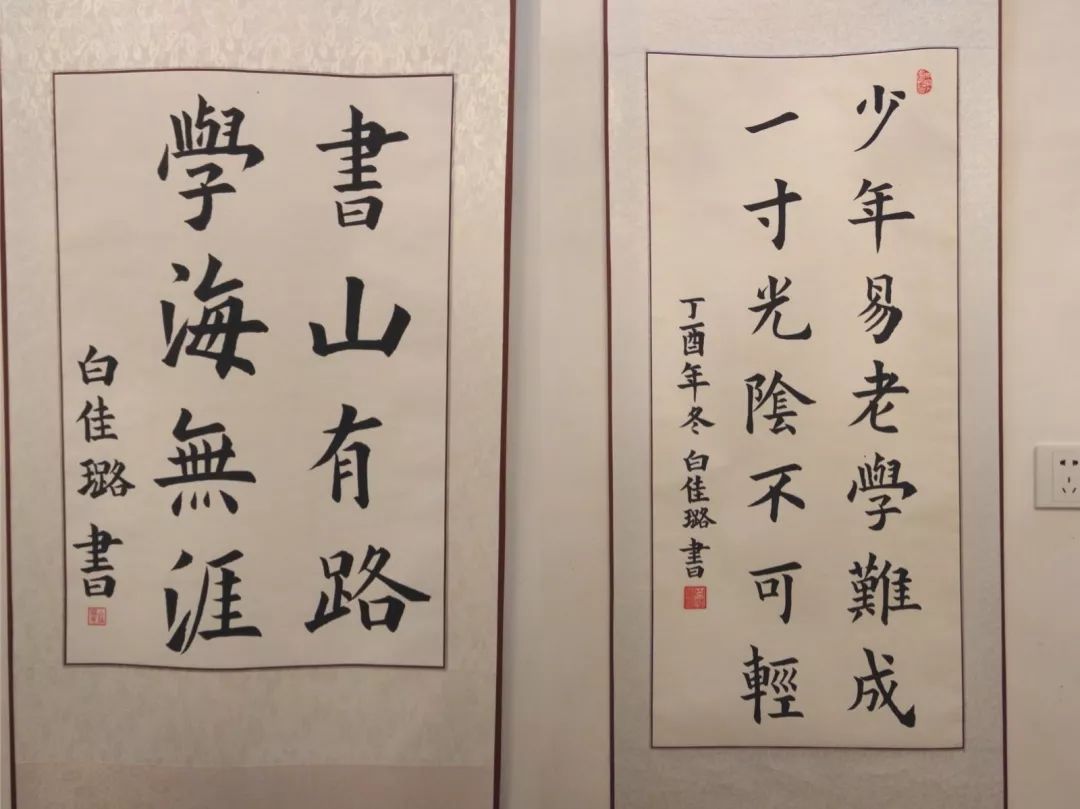 書山有路
學海無涯
白佳璐書
少年易老學難成
一寸光陰不可輕
丁酉年冬白佳璐書